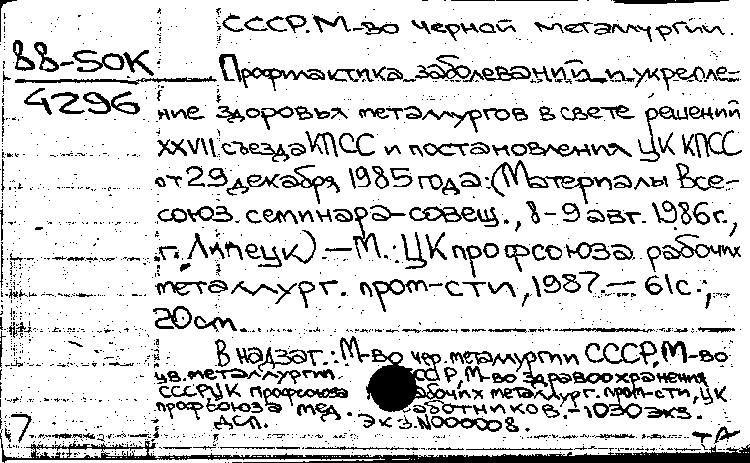 СССР. М-во черной металлургии.
88-50К
Профилактика заболеваний и укрепле-
4296
ние здоровья металлургов в свете решений
XXVII съезда КПСС и постановления ЦК КПСС
от 29 декабря 1985 года: (Материалы Все-
союз. семинара-совещ., 8-9 авг. 1986г.,
г. Липецк). - М.: ЦК профсоюза рабочих
металлург. пром-сти, 1987. - 61с.;
20 см.
В надзаг.: М-во чер. металлургии СССР, М-во
цв. металлургии. СССР, М-во здравоохранения
СССР, ЦК профсоюза рабочих металлург. пром-сти, ЦК
профсоюза мед. работников. - 1030 экз.
ДСП. Экз. N000008.
7
ТА